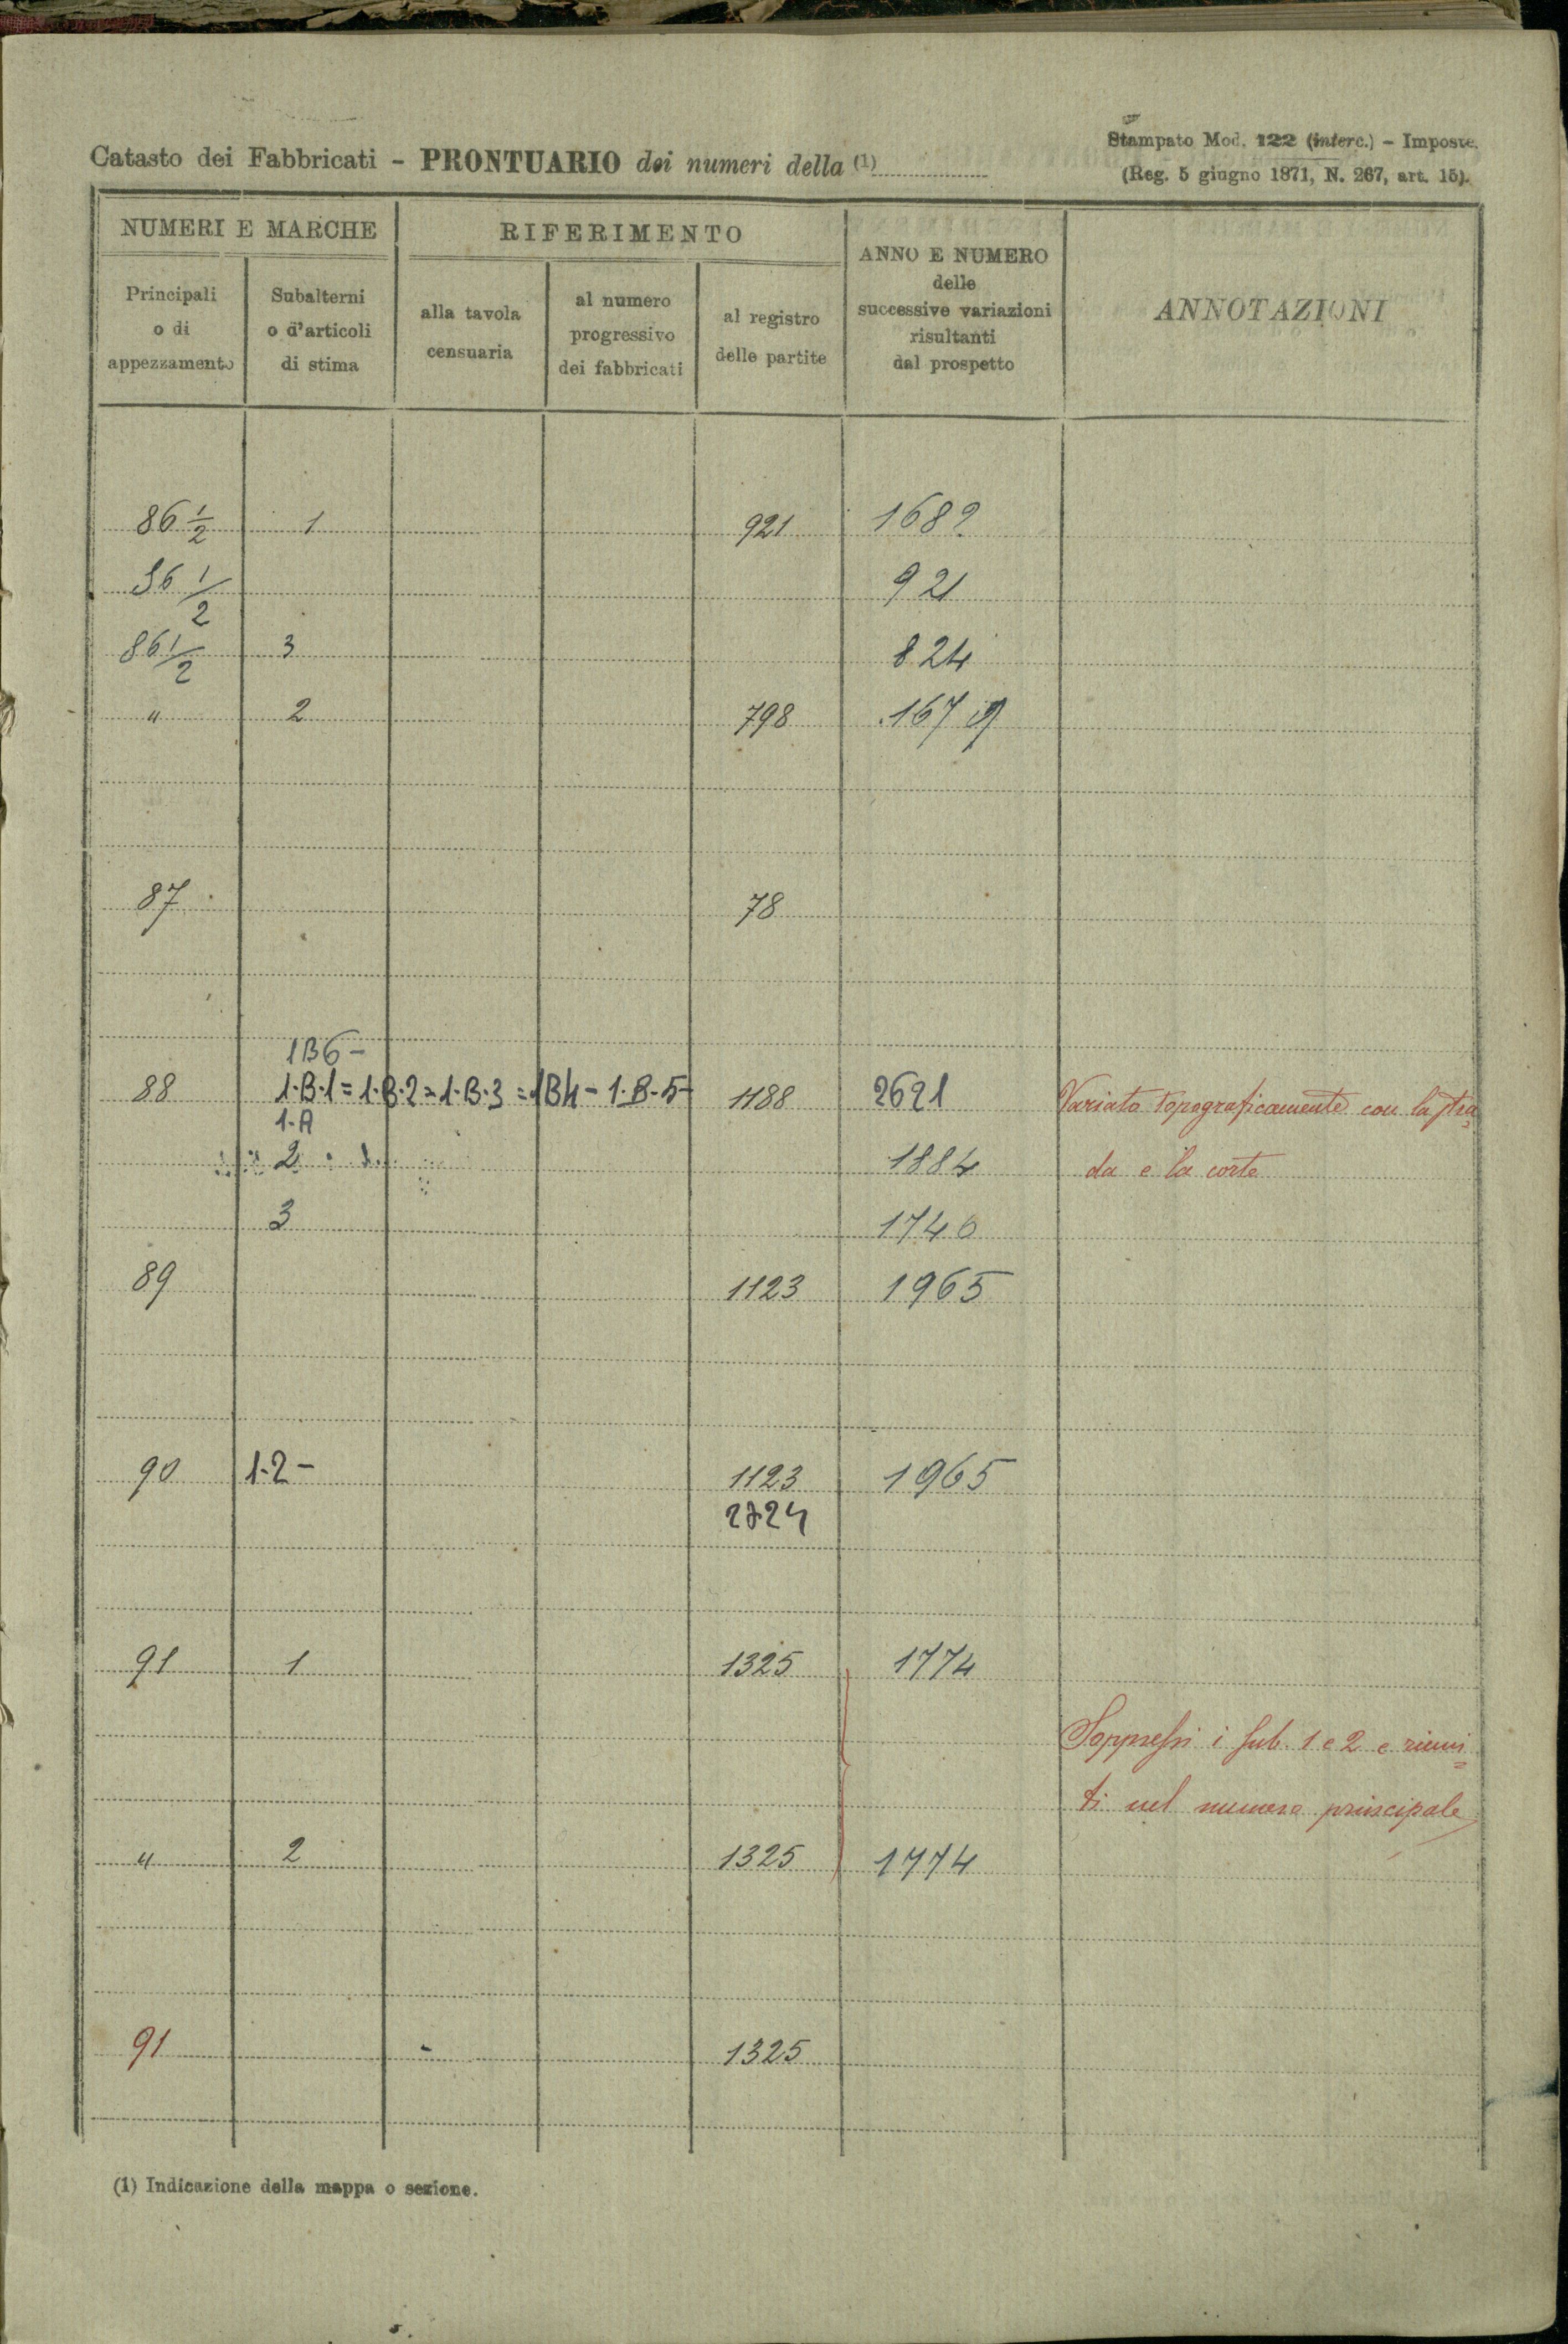 Catasto dei Fabbricati - PRONTUARIO dei numeri della (1)
Stampato Mod. 122 (interc.) - Imposte.
(Reg. 5 giugno 1871, N. 267, art. 15).
NUMERI E MARCHE
RIFERIMENTO
ANNO E NUMERO
delle
successive variazioni
risultanti
dal prospetto
ANNOTAZIONI
Principali
o di
appezzamento
Subalterni
o d'articoli
di stima
alla tavola
censuaria
al numero
progressivo
dei fabbricati
al registro
delle partite
86 1/2 1 921 1682
86 1/2 921
86 1/2 3 824
" 2 798 1679
87 78
1B6 -
88 1·B·1 = 1·B·2 = 1·B·3 = 1B4 - 1·B·5 - 1188 2621 Variato topograficamente con la stra=
1·A
2 1884 da e la corte
3 1740
89 1123 1965
90 1·2 - 1123 1965
2724
91 1 1325 1774
Soppressi i sub. 1 e 2 e riuni=
ti nel numero principale
" 2 1325 1774
91 1325
(1) Indicazione della mappa o sezione.